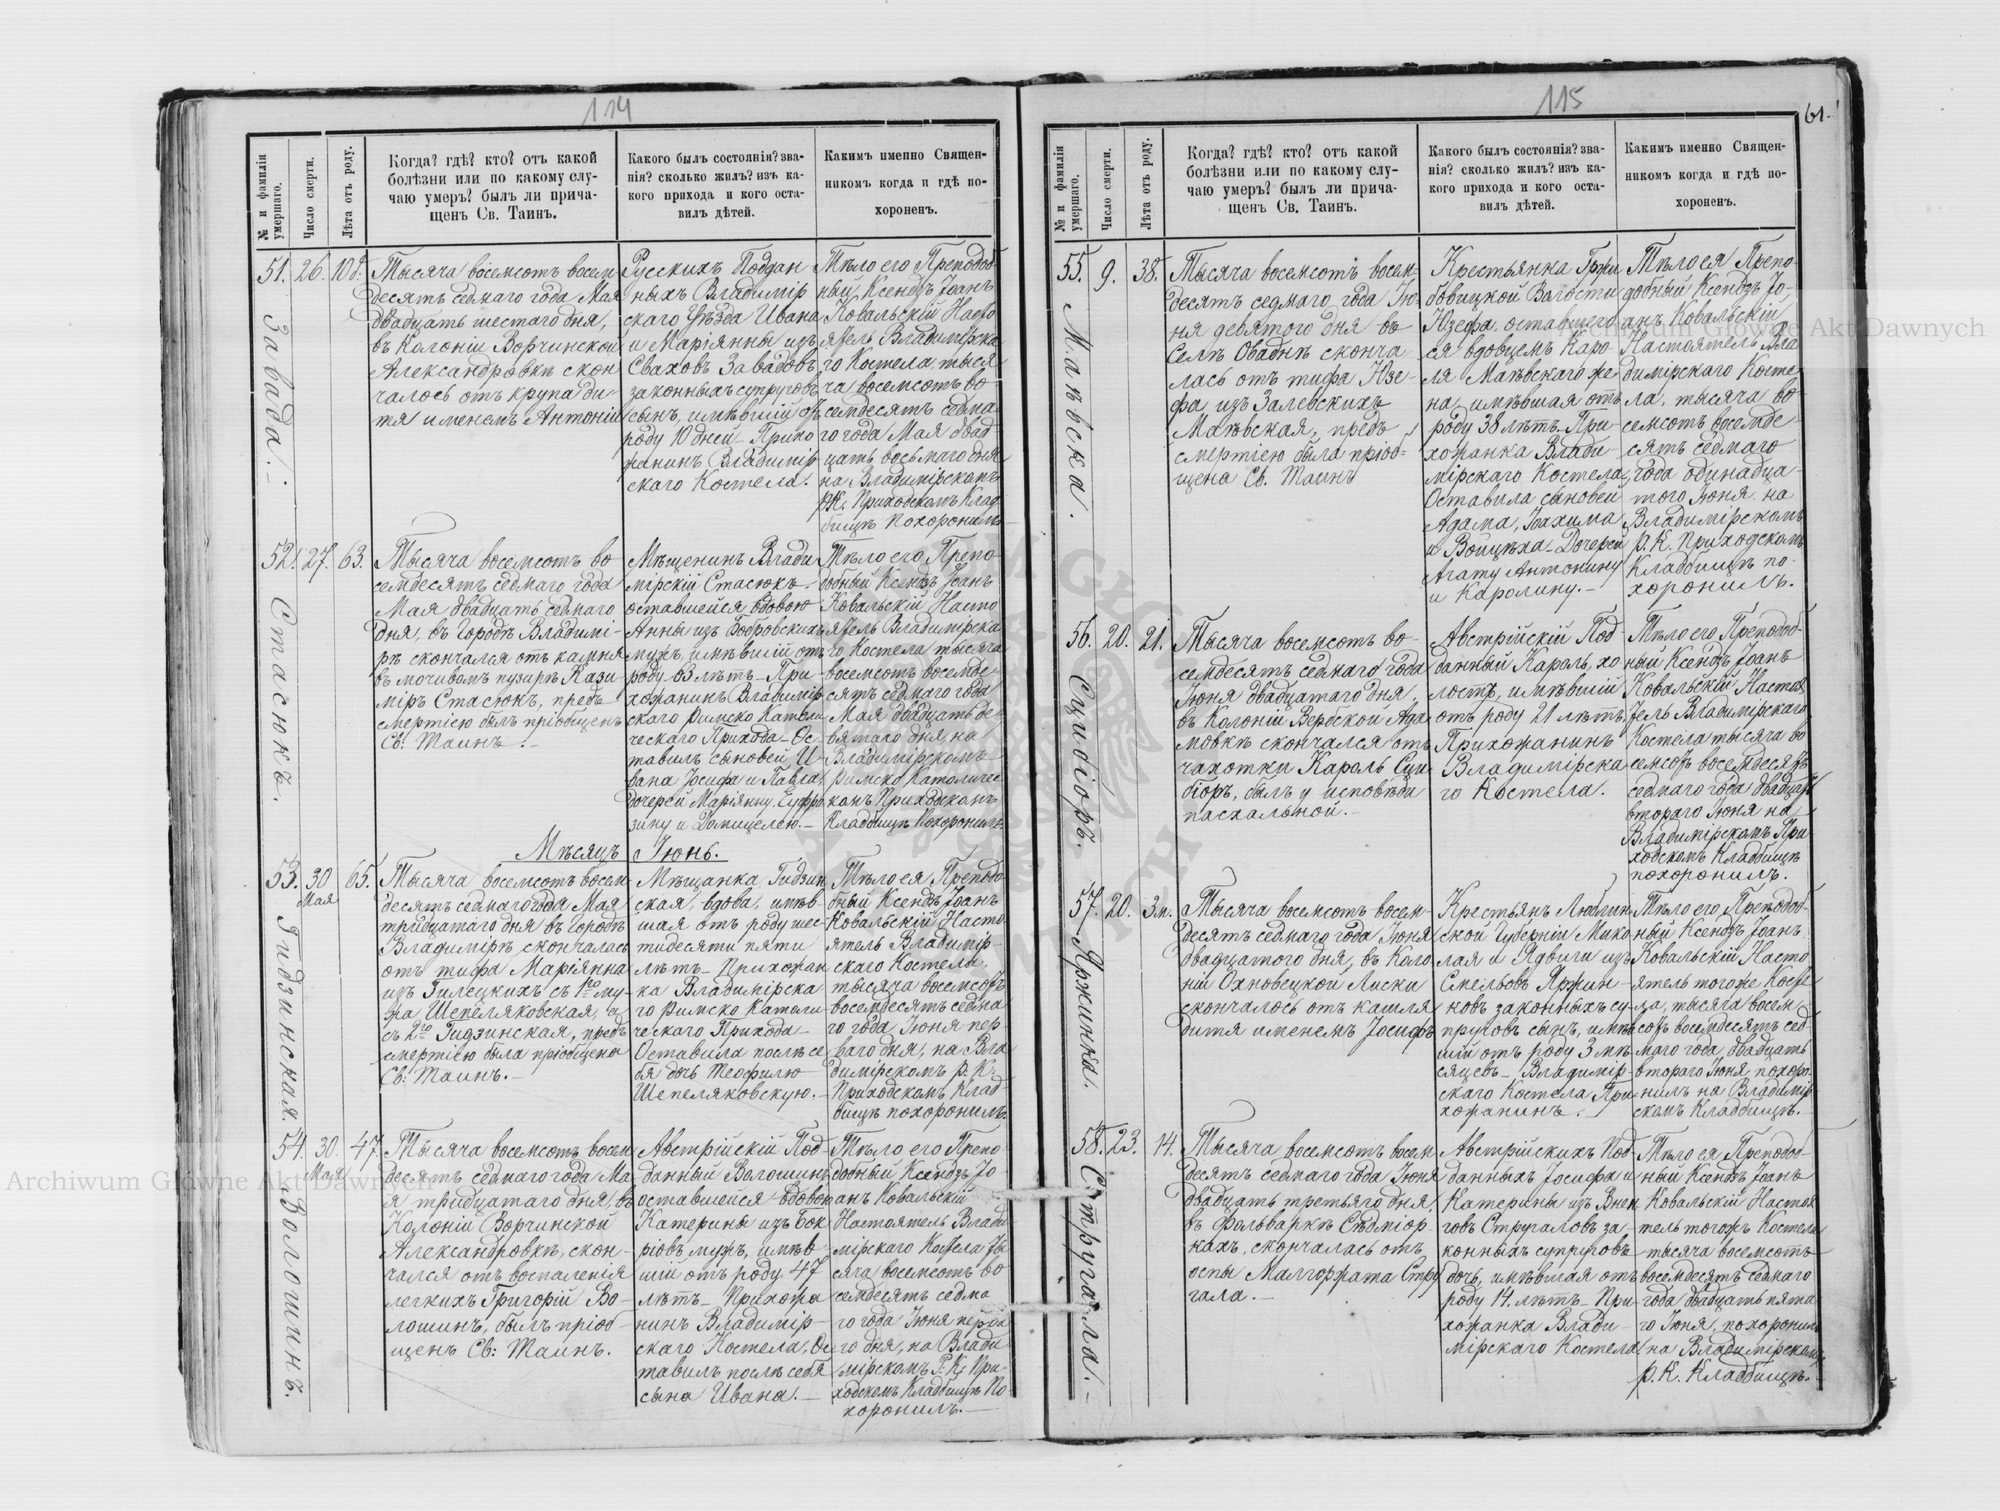 114
№ и фамилія умершаго.
Число смерти.
Лѣта отъ роду.
Когда? гдѣ? кто? отъ какой
болѣзни или по какому слу-
чаю умеръ? былъ ли прича-
щенъ Св. Таинъ.
Какого былъ состоянія? зва-
нія? сколько жилъ? изъ ка-
кого прихода и кого оста-
вилъ дѣтей.
Какимъ именно Священ-
никомъ когда и гдѣ по-
хороненъ.
51. 26. 10 д.
Завада.
Тысяча восемсотъ восем
десятъ седмаго года Мая
двадцать шестаго дня,
въ Колоніи Ворчинской
Александровки скон
чалось отъ крупа ди-
тя именемъ Антоній
Русскихъ Поддан
ныхъ Владимір
скаго Уѣзда Ивана
и Маріянны изъ
Сваховъ Завадовъ
законныхъ супруговъ
сынъ, имѣвшій отъ
роду 10 дней - Прихо
жанинъ Владимір
скаго Костела.
Тѣло его Преподоб
ный Ксендзъ Іоанъ
Ковальскій Насто
ятель Владимірска
го Костела тыся
ча восемсотъ во
семдесятъ седма
го года Мая двад
цать восьмаго дня
на Владимірскомъ
Р.К. Приходскомъ Клад
бищѣ похоронилъ
52. 27. 63.
Стасюкъ.
Тысяча восемсотъ во
семдесятъ седмаго года
Мая двадцать седмаго
дня, въ Городѣ Владимі-
рѣ скончался отъ камня
въ мочивомъ пузырѣ Кази
міръ Стасюкъ, предъ
смертію былъ пріобщенъ
Св: Таинъ. -
Мѣщенинъ Влади
мірскій Стасюкъ
оставшейся вдовою
Анны изъ Бобровскихъ
мужъ, имѣвшій отъ
роду 63 лѣтъ - При
хожанинъ Владимір
скаго Римско Католи
ческаго Прихода - Ос
тавилъ сыновей И
вана Іосифа и Павла
дочерей Маріянну Еуфро
зину и Домицелею. -
Тѣло его Препо
добный Ксендзъ Іоанъ
Ковальскій Насто
ятель Владимірска
го Костела тысяча
восемсотъ восемде
сятъ седмаго года
Мая двадцать де-
вятаго дня на
Владимірскомъ
Римско Католичес
комъ Приходскомъ
Кладбищѣ Похоронилъ
Мѣсяцъ Іюнь.
53. 30 Мая 65.
Гидзинская.
Тысяча восемсотъ восем-
десятъ седмаго года Мая
тридцатаго дня въ Городѣ
Владимірѣ, скончалась
отъ тифа Маріянна
изъ Гилецкихъ съ 1го му-
жа Шепеляковская, а
съ 2го Гидзинская, предъ
смертію была пріобщена
Св: Таинъ. -
Мѣщанка Гидзин
ская, вдова, имѣв-
шая отъ роду шес-
тидесяти пяти
лѣтъ - Прихожан
ка Владимірска
го Римско Катали
ческаго Прихода -
Оставила послѣ се
бя дочь Теофилю
Шепеляковскую. -
Тѣло ея Преподо
бный Ксендзъ Іоанъ
Ковальскій Насто
ятель Владимір-
скаго Костела,
тысяча восемсотъ
восемдесятъ седма
го года Іюня пер
ваго дня, на Вла
димірскомъ Р. К.
Приходскомъ Клад
бищѣ похоронилъ
54. 30. Мая 47.
Волошинъ.
Тысяча восемсотъ восем
десятъ седмаго года Ма
я тридцатаго дня, въ
Колоніи Ворчинской
Александровкѣ, скон-
чался отъ воспаленія
легкихъ Григорій Во-
лошинъ, былъ пріоб-
щенъ Св: Таинъ.
Австрійскій Под-
данный Волошинъ
оставшейся вдовою
Катерины изъ Бок
ріовъ мужъ, имѣв
шій отъ роду 47
лѣтъ - Прихожа
нинъ Владимір-
скаго Костела, Ос
тавилъ послѣ себя
сына Ивана. -
Тѣло его Препо-
добный Ксендзъ Іо
анъ Ковальскій
Настоятель Влади-
мірскаго Костела ты
сяча восемсотъ во
семдесятъ седма
го года Іюня перва
го дня, на Влади
мірскомъ Р. К. При-
ходскомъ Кладбищѣ По
хоронилъ. -
115
61.
№ и фамилія умершаго.
Число смерти.
Лѣта отъ роду.
Когда? гдѣ? кто? отъ какой
болѣзни или по какому слу-
чаю умеръ? былъ ли прича-
щенъ Св. Таинъ.
Какого былъ состоянія? зва-
нія? сколько жилъ? изъ ка-
кого прихода и кого оста-
вилъ дѣтей.
Какимъ именно Священ-
никомъ когда и гдѣ по-
хороненъ.
55. 9. 38.
Маѣвска.
Тысяча восемсотъ восем-
десятъ седмаго года Ію-
ня девятого дня въ
Селѣ Оваднѣ сконча
лась отъ тифа Юзе-
фа изъ Залевскихъ
Маѣвская, предъ
смертію была пріоб-
щена Св. Таинъ
Крестьянка Гржи
бовицкой Волости
Юзефа оставшего
ся вдовцемъ Каро
ля Маѣвскаго же
на, имѣвшая отъ
роду 38 лѣтъ. При
хожанка Влади
мірскаго Костела
Оставила сыновей
Адама, Іоахима
и Войцѣха - Дочерей
Агату Антонину
и Каролину. -
Тѣло ея Препо-
добный Ксендзъ Іо,
анъ Ковальскій
Настоятель Вла
димірскаго Косте
ла, тысяча во-
семсотъ восемде-
сятъ седмаго
года одинадца-
того Іюня на
Владимірскомъ
Р. К. Приходскомъ
Кладбищѣ по-
хоронилъ.
56. 20. 21.
Сцибіоръ.
Тысяча восемсотъ во-
семдесятъ седмаго года
Іюня двадцатаго дня,
въ Колоніи Вербской Ада
мовкѣ скончался отъ
чахотки Кароль Сци
біоръ, былъ у исповѣди
пасхальной. -
Австрійскій Под
данный Кароль, хо
лостъ, имѣвшій
отъ роду 21 лѣтъ
Прихожанинъ
Владимірска
го Костела.
Тѣло его Преподоб-
ный Ксендзъ Іоанъ
Ковальскій Настоя
тель Владимірскаго
Костела тысяча во
семсотъ восемдесятъ
седмаго года двадцать
втораго Іюня на
Владимірскомъ При
ходскомъ Кладбищѣ
похоронилъ.
57. 20. 3 м.
Яржинка.
Тысяча восемсотъ восем-
десятъ седмаго года Іюня
двадцатого дня, въ Коло
ніи Охновецкой Лиски
скончалось отъ кашля
дитя именемъ Іосифъ
Крестьянъ Люблин-
ской Губерніи Мико
лая и Ядвиги изъ
Смельовъ Яржин-
ковъ законныхъ су-
пруговъ сынъ, имѣв
шій отъ роду 3 мѣ
сяцевъ - Владимір-
скаго Костела При
хожанинъ.
Тѣло его Преподоб-
ный Ксендзъ Іоанъ
Ковальскій Насто
ятель тогоже Косте
ла, тысяча восем
сотъ восемдесятъ сед-
маго года двадцать
втораго Іюня похоро-
нилъ на Владимір
скомъ Кладбищѣ. -
58. 23. 14.
Стругала. -
Тысяча восемсотъ восем
десятъ седмаго года Іюня
двадцать третьяго дня,
въ Фольваркѣ Сѣдміор-
кахъ, скончалась отъ
оспы Малгоржата Стру
гала. -
Австрійскихъ Под
данныхъ Іосифа и
Катерины изъ Внен
говъ Стругаловъ за-
конныхъ супруговъ
дочь, имѣвшая отъ
роду 14. лѣтъ - При-
хожанка Влади-
мірскаго Костела
Тѣло ея Преподоб-
ный Ксендзъ Іоанъ
Ковальскій Настоя
тель тогожъ Костела
тысяча восемсотъ
восемдесятъ седмаго
года двадцать пята
го Іюня, похоронилъ
на Владимірскомъ
Р. К. Кладбищѣ. -
Archiwum Główne Akt Dawnych
Archiwum Główne Akt Dawnych